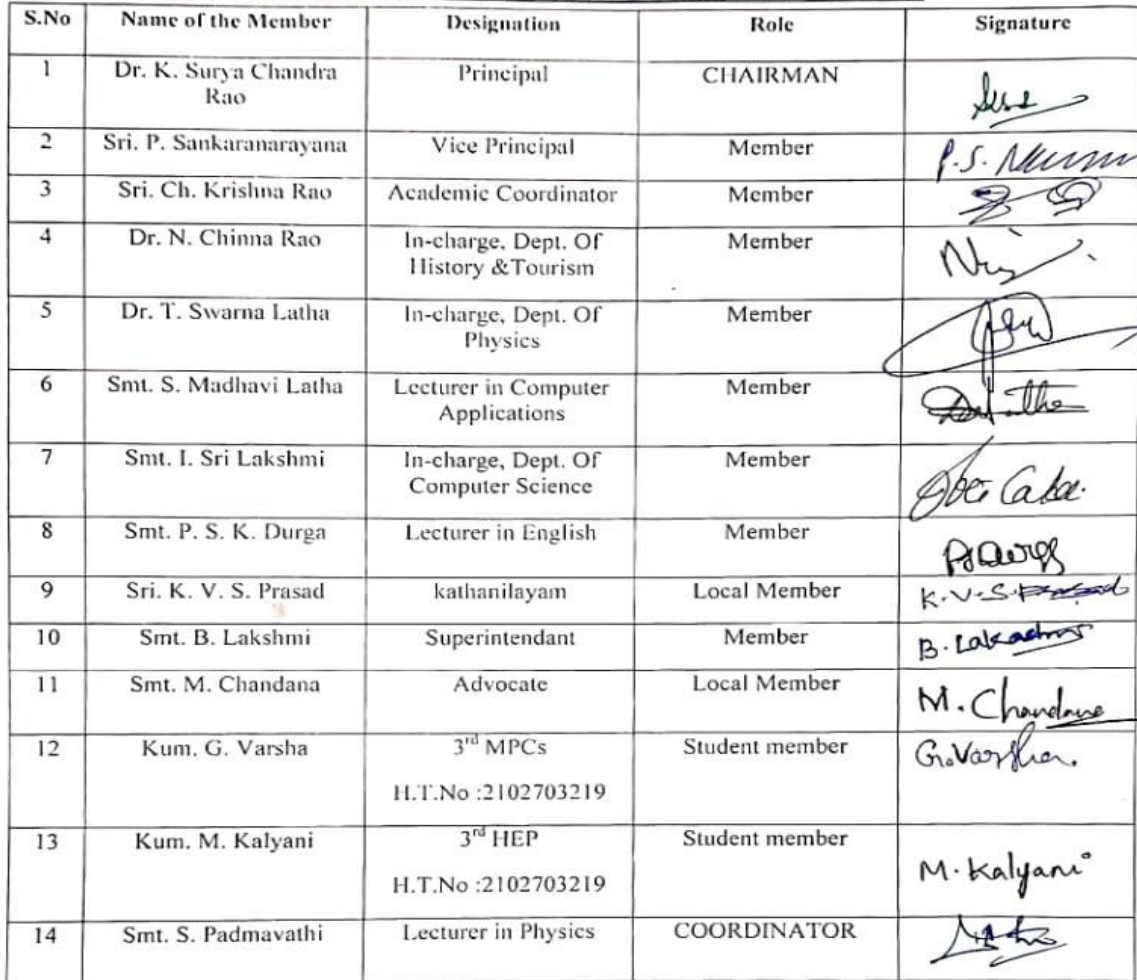 S.No Name of the Member Designation Role Signature
1 Dr. K. Surya Chandra Principal CHAIRMAN
Rao
2 Sri. P. Sankaranarayana Vice Principal Member P.S.
3 Sri. Ch. Krishna Rao Academic Coordinator Member
4 Dr. N. Chinna Rao In-charge, Dept. Of Member
History &Tourism
5 Dr. T. Swarna Latha In-charge, Dept. Of Member
Physics
6 Smt. S. Madhavi Latha Lecturer in Computer Member
Applications
7 Smt. I. Sri Lakshmi In-charge, Dept. Of Member
Computer Science
8 Smt. P. S. K. Durga Lecturer in English Member
9 Sri. K. V. S. Prasad kathanilayam Local Member K.V.S.Prasad
10 Smt. B. Lakshmi Superintendant Member B.Lakashmi
11 Smt. M. Chandana Advocate Local Member M. Chandana
12 Kum. G. Varsha 3rd MPCs Student member G.Varsha.
H.T.No :2102703219
13 Kum. M. Kalyani 3rd HEP Student member M.Kalyani
H.T.No :2102703219
14 Smt. S. Padmavathi Lecturer in Physics COORDINATOR